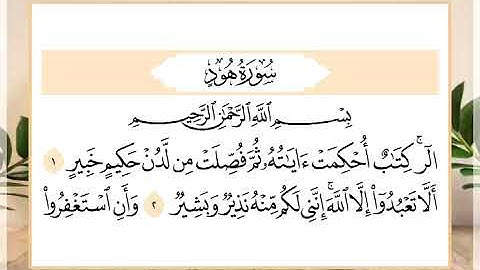 سُورَةُ هُودٍ
بِسْمِ ٱللَّهِ ٱلرَّحْمَٰنِ ٱلرَّحِيمِ
الٓرۚ كِتَٰبٌ أُحْكِمَتْ ءَايَٰتُهُۥ ثُمَّ فُصِّلَتْ مِن لَّدُنْ حَكِيمٍ خَبِيرٍ ١
أَلَّا تَعْبُدُوٓا۟ إِلَّا ٱللَّهَۚ إِنَّنِى لَكُم مِّنْهُ نَذِيرٌ وَبَشِيرٌ ٢ وَأَنِ ٱسْتَغْفِرُوا۟